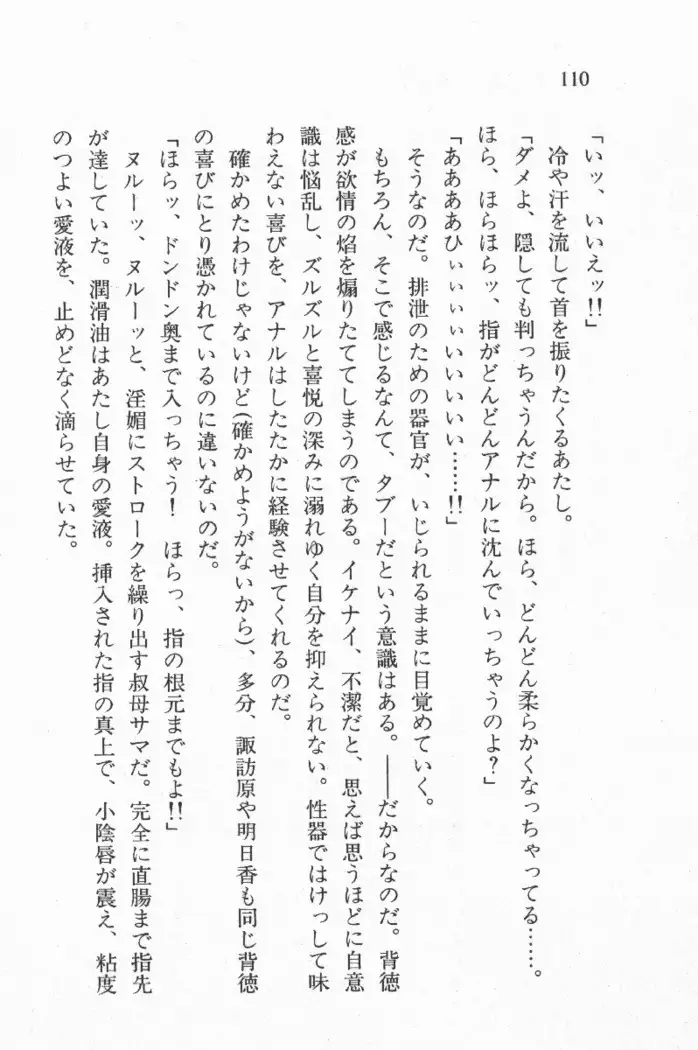 110
「いッ、いいえッ!!」
冷や汗を流して首を振りたくるあたし。
「ダメよ、隠しても判っちゃうんだから。ほら、どんどん柔らかくなっちゃってる……。
ほら、ほらほらッ、指がどんどんアナルに沈んでいっちゃうのよ？」
「ああああひぃぃぃぃいいいいい……!!」
そうなのだ。排泄のための器官が、いじられるままに目覚めていく。
もちろん、そこで感じるなんて、タブーだという意識はある。――だからなのだ。背徳
感が欲情の焔を煽りたててしまうのである。イケナイ、不潔だと、思えば思うほどに自意
識は悩乱し、ズルズルと喜悦の深みに溺れゆく自分を抑えられない。性器ではけっして味
わえない喜びを、アナルはしたたかに経験させてくれるのだ。
確かめたわけじゃないけど(確かめようがないから)、多分、諏訪原や明日香も同じ背徳
の喜びにとり憑かれているのに違いないのだ。
「ほらッ、ドンドン奥まで入っちゃう！　ほらっ、指の根元までもよ!!」
ヌルーッ、ヌルーッと、淫媚にストロークを繰り出す叔母サマだ。完全に直腸まで指先
が達していた。潤滑油はあたし自身の愛液。挿入された指の真上で、小陰唇が震え、粘度
のつよい愛液を、止めどなく滴らせていた。